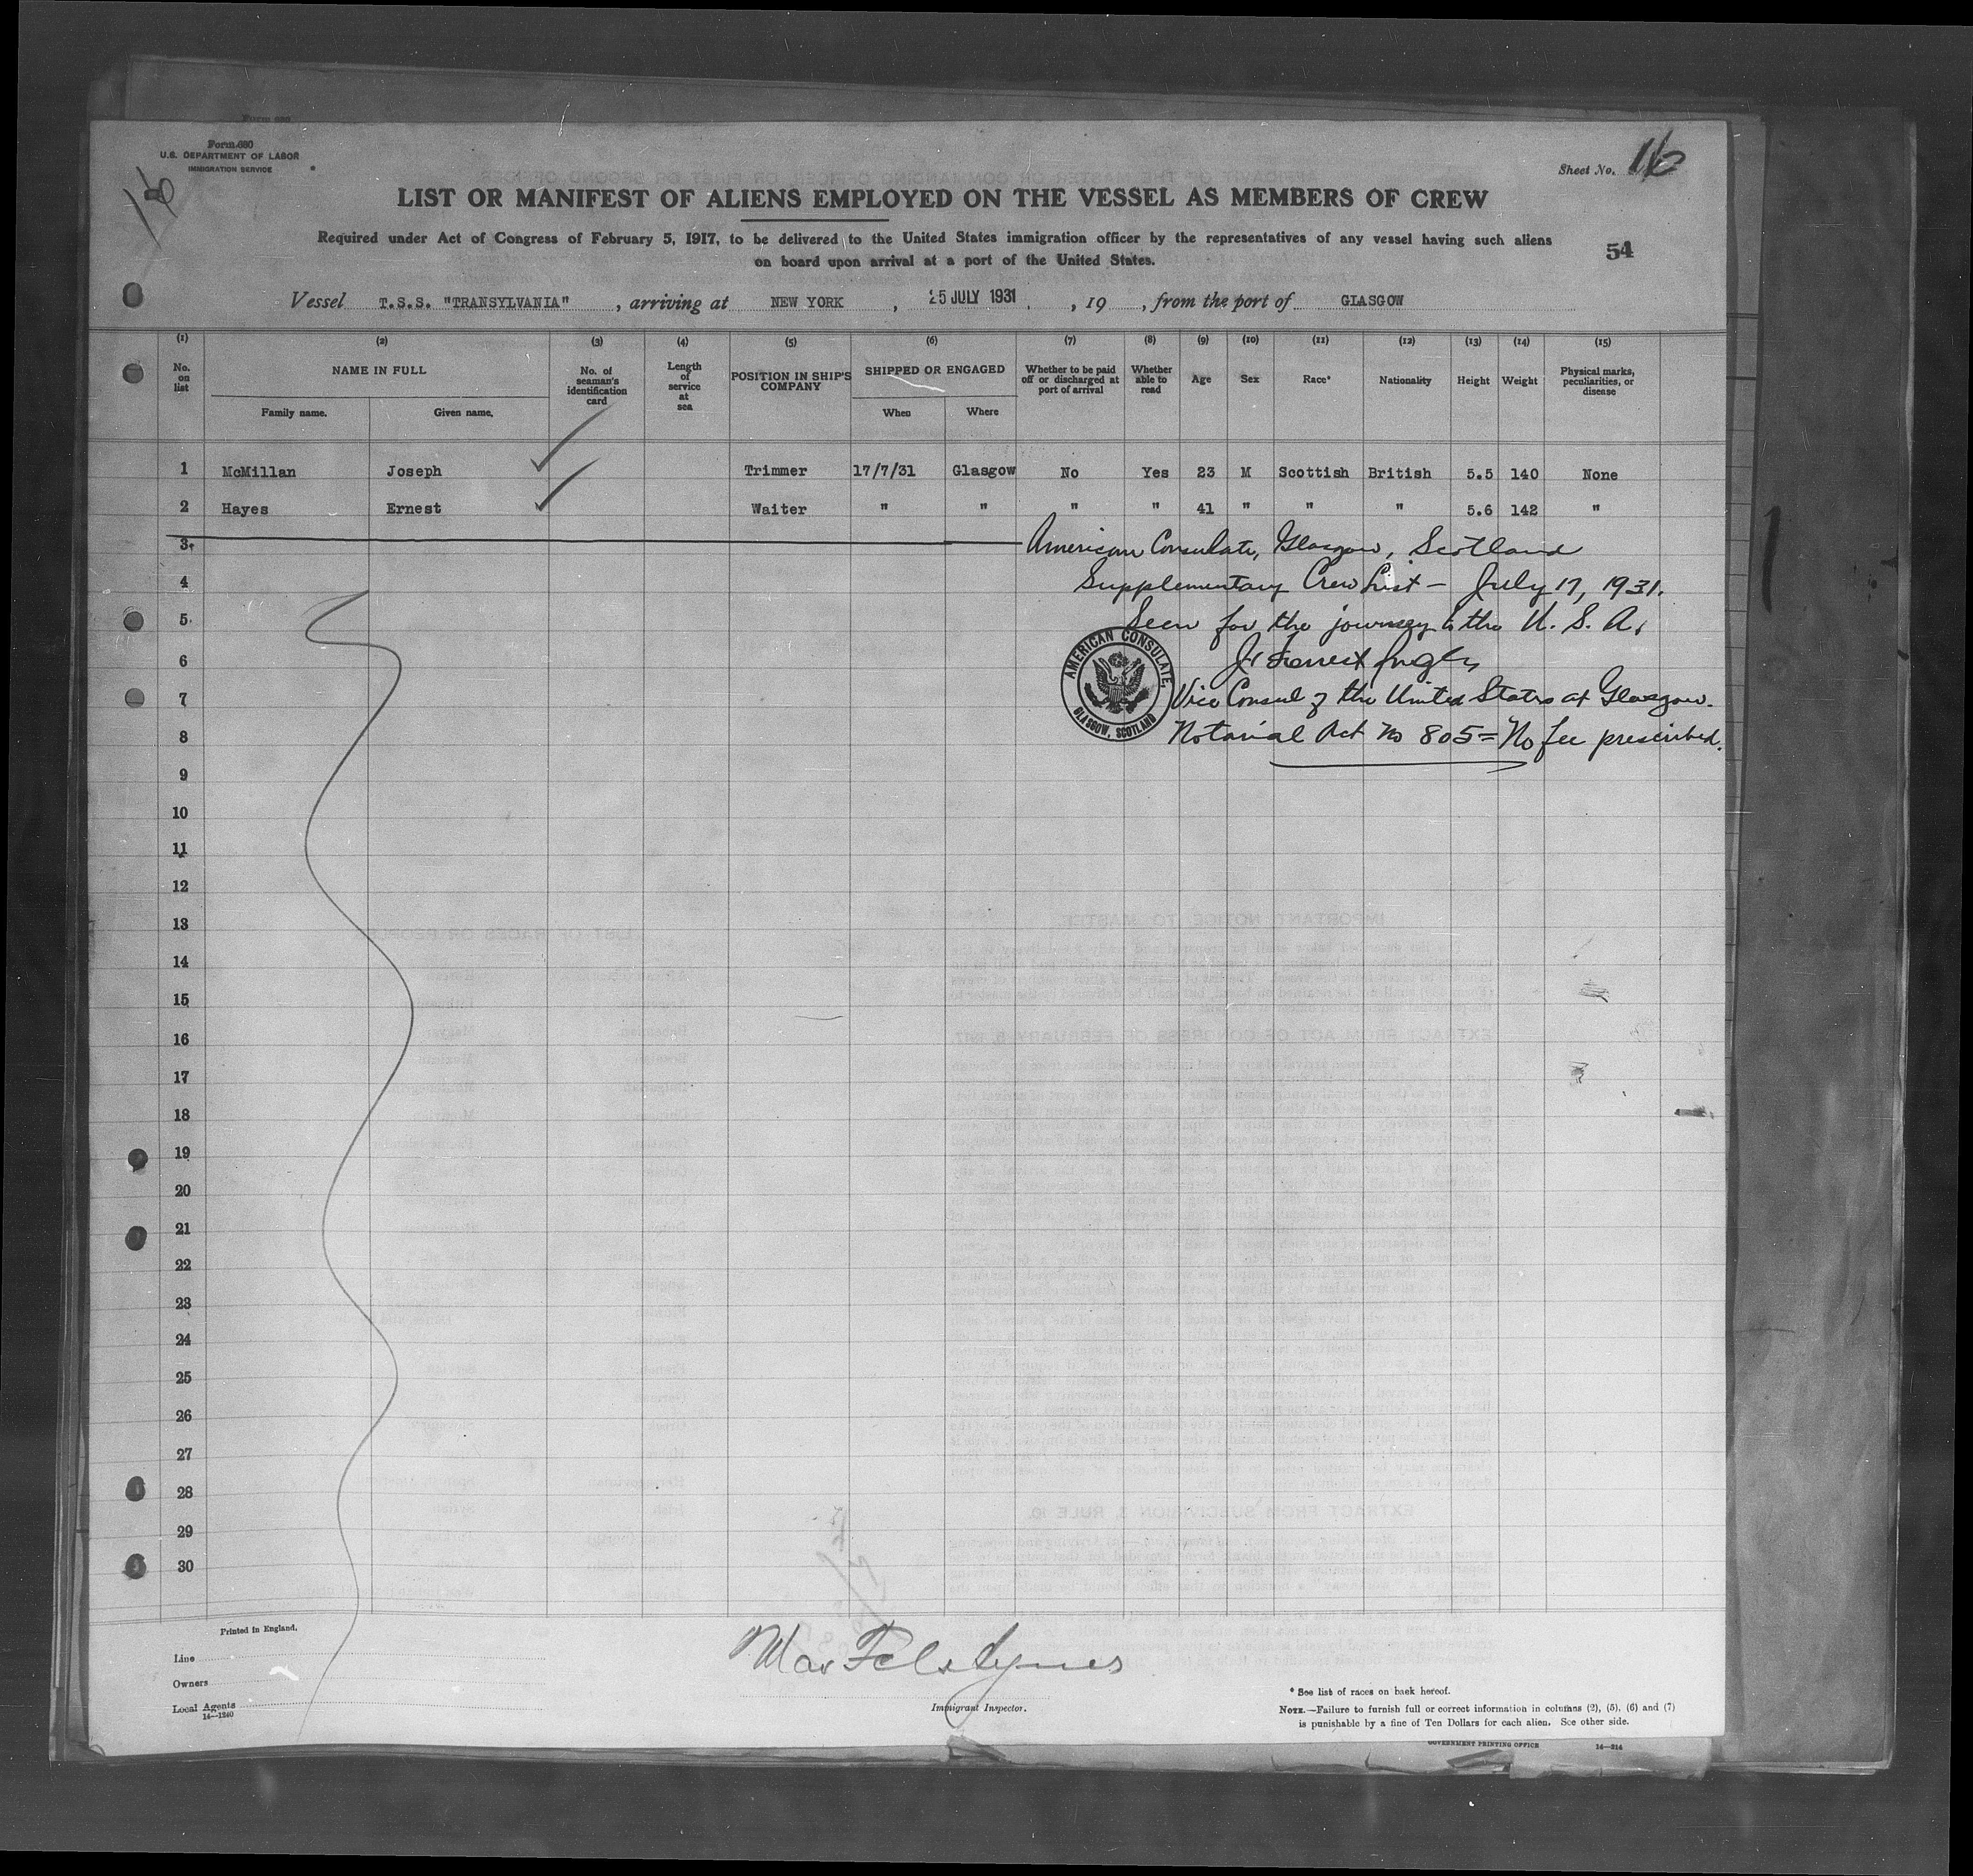 Form 680
U.S. DEPARTMENT OF LABOR
IMMIGRATION SERVICE
Sheet No. 16
LIST OR MANIFEST OF ALIENS EMPLOYED ON THE VESSEL AS MEMBERS OF CREW
Required under Act of Congress of February 5, 1917, to be delivered to the United States immigration officer by the representatives of any vessel having such aliens
on board upon arrival at a port of the United States.
54
Vessel T.S.S. "TRANSYLVANIA", arriving at NEW YORK, 25 JULY 1931, 19 , from the port of GLASGOW
(1) (2) (3) (4) (5) (6) (7) (8) (9) (10) (11) (12) (13) (14) (15)
No. on list
NAME IN FULL
Family name. Given name.
No. of seaman's identification card
Length of service at sea
POSITION IN SHIP'S COMPANY
SHIPPED OR ENGAGED
When Where
Whether to be paid off or discharged at port of arrival
Whether able to read
Age
Sex
Race*
Nationality
Height
Weight
Physical marks, peculiarities, or disease
1 McMillan Joseph Trimmer 17/7/31 Glasgow No Yes 23 M Scottish British 5.5 140 None
2 Hayes Ernest Waiter " " " " 41 " " " 5.6 142 "
3 American Consulate, Glasgow, Scotland
4 Supplementary Crew List - July 17, 1931.
5 Seen for the journey to the U. S. A.
6
7 Vice Consul of the United States at Glasgow.
8 Notarial Act No 805 = No fee prescribed.
AMERICAN CONSULATE,
GLASGOW, SCOTLAND
9
10
11
12
13
14
15
16
17
18
19
20
21
22
23
24
25
26
27
28
29
30
Printed in England.
Line
Owners
Local Agents
14-1240
Immigrant Inspector.
* See list of races on back hereof.
NOTE.—Failure to furnish full or correct information in columns (2), (5), (6) and (7)
is punishable by a fine of Ten Dollars for each alien. See other side.
GOVERNMENT PRINTING OFFICE 14—314